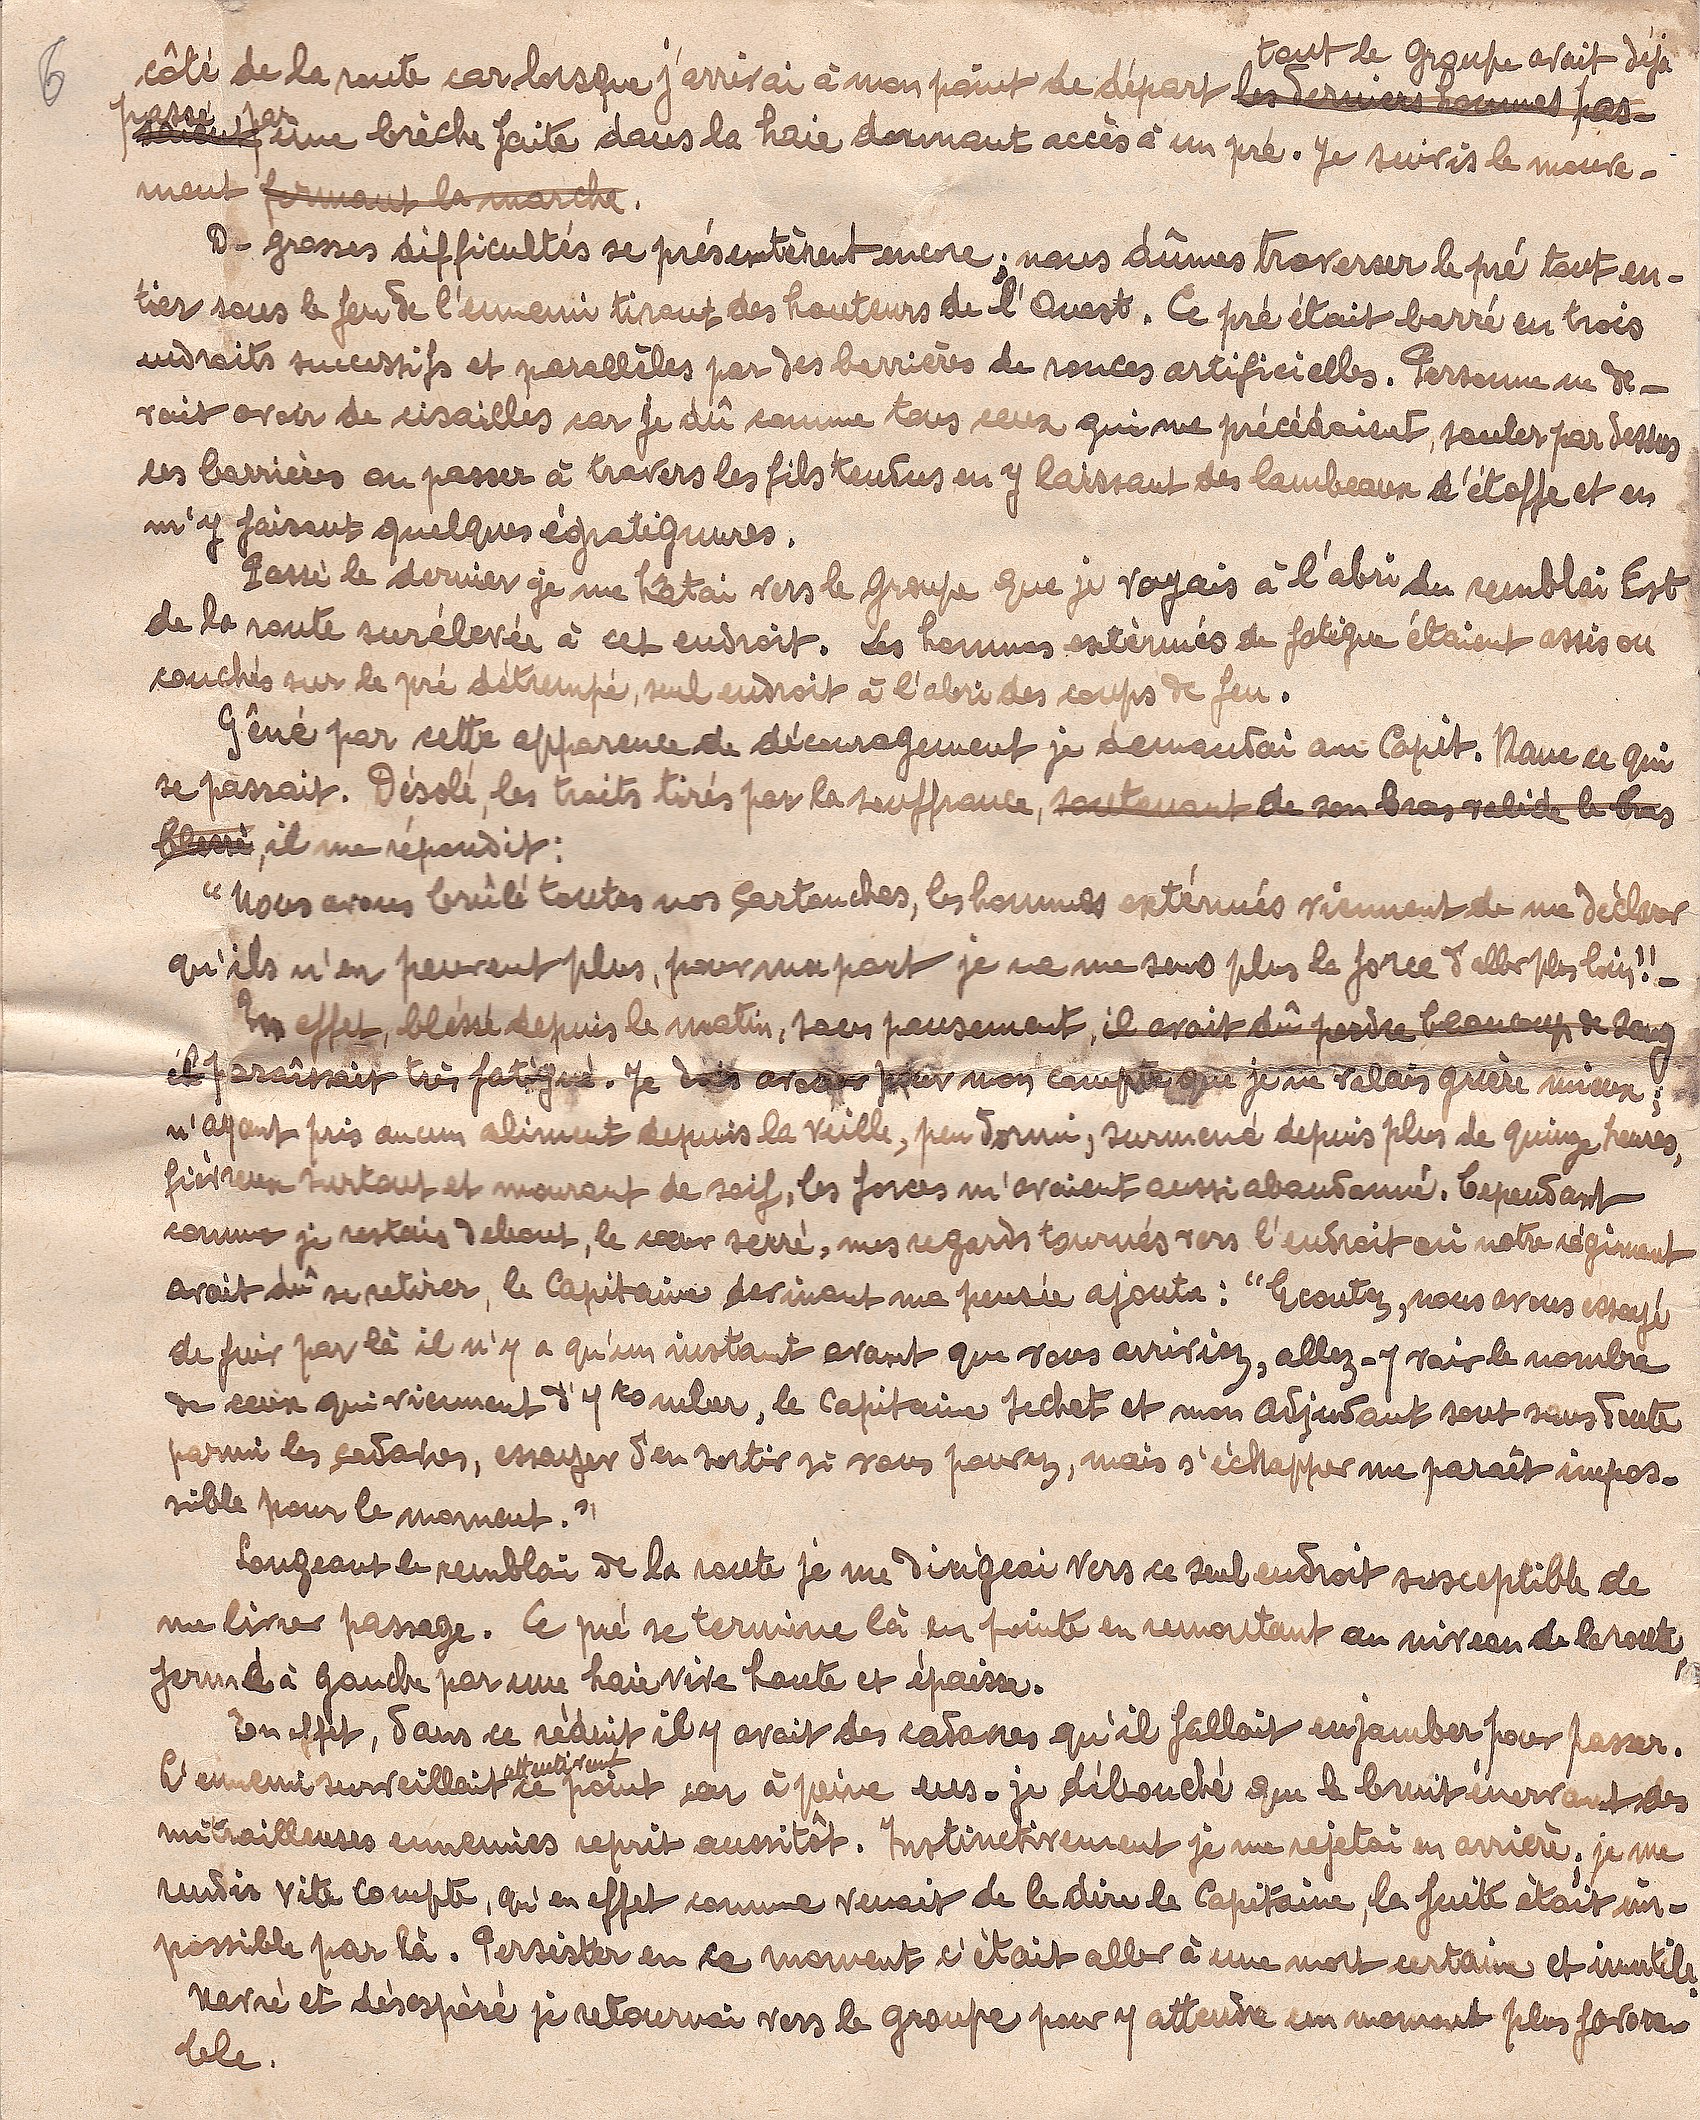 6
tout le Groupe avait déjà
côté de la route car lorsque j'arrivai à mon point de départ les derniers hommes pas-
passé par
saient par une brèche faite dans la haie donnant accès à un pré. Je suivis le mouve-
ment fermant la marche.
D- grosses difficultés se présentèrent encore ; nous dûmes traverser le pré tout en-
tier sous le feu de l'ennemi tirant des hauteurs de l'Ouest. Ce pré était barré en trois
endroits successifs et parallèles par des barrières de ronces artificielles. Personne ne de-
vait avoir de cisailles car je dû comme tous ceux qui me précédaient, sauter par dessus
ces barrières ou passer à travers les fils tendus en y laissant des lambeaux d'étoffe et en
m'y faisant quelques égratignures.
Passé le dernier je me hâtai vers le Groupe que je voyais à l'abri du remblai Est
de la route surélevée à cet endroit. Les hommes exténués de fatigue étaient assis ou
couchés sur le pré détrempé, seul endroit à l'abri des coups de feu.
Gêné par cette apparence de découragement je demandai au Capit. Nane ce qui
se passait. Désolé, les traits tirés par la souffrance, soutenant de son bras valide le bras
blessé, il me répondit :
"Nous avons brûlé toutes nos cartouches, les hommes exténués viennent de me déclarer
qu'ils n'en peuvent plus, pour ma part je ne me sens plus la force d'aller plus loin"!-
En effet, bléssé depuis le matin, sans pansement, il avait dû perdre beaucoup de sang
il paraîssait très fatigué. Je dois avouer pour mon compte que je ne valais guère mieux ;
n'ayant pris aucun aliment depuis la veille, peu dormi, surmené depuis plus de quinze heures,
fièvreux surtout et mourant de soif, les forces m'avaient aussi abandonné. Cependant
comme je restais debout, le coeur serré, mes regards tournés vers l'endroit où notre régiment
avait dû se retirer, le Capitaine devinant ma pensée ajouta : "Ecoutez, nous avons essayé
de fuir par là il n'y a qu'un instant avant que vous arriviez, allez-y voir le nombre
de ceux qui viennent d'y tomber, le Capitaine Jechet et mon adjudant sont sans doute
parmi les cadavres, essayer d'en sortir si vous pouvez, mais s'échapper me paraît impos-
sible pour le moment."
Longeant le remblai de la route je me dirigeai vers ce seul endroit susceptible de
me livrer passage. Ce pré se termine là en pointe en remontant au niveau de la route,
fermé à gauche par une haie vive haute et épaisse.
En effet, dans ce réduit il y avait des cadavres qu'il fallait enjamber pour passer.
attentivement
L'ennemi surveillait ce point car à peine eus-je débouché que le bruit énervant des
mitrailleuses ennemies reprit aussitôt. Instinctivement je me rejetai en arrière ; je me
rendis vite compte, qu'en effet comme venait de le dire le Capitaine, la fuite était im-
possible par là. Persister en ce moment c'était aller à une mort certaine et inutile.
Navré et désespéré je retournai vers le groupe pour y attendre un moment plus favora-
ble.